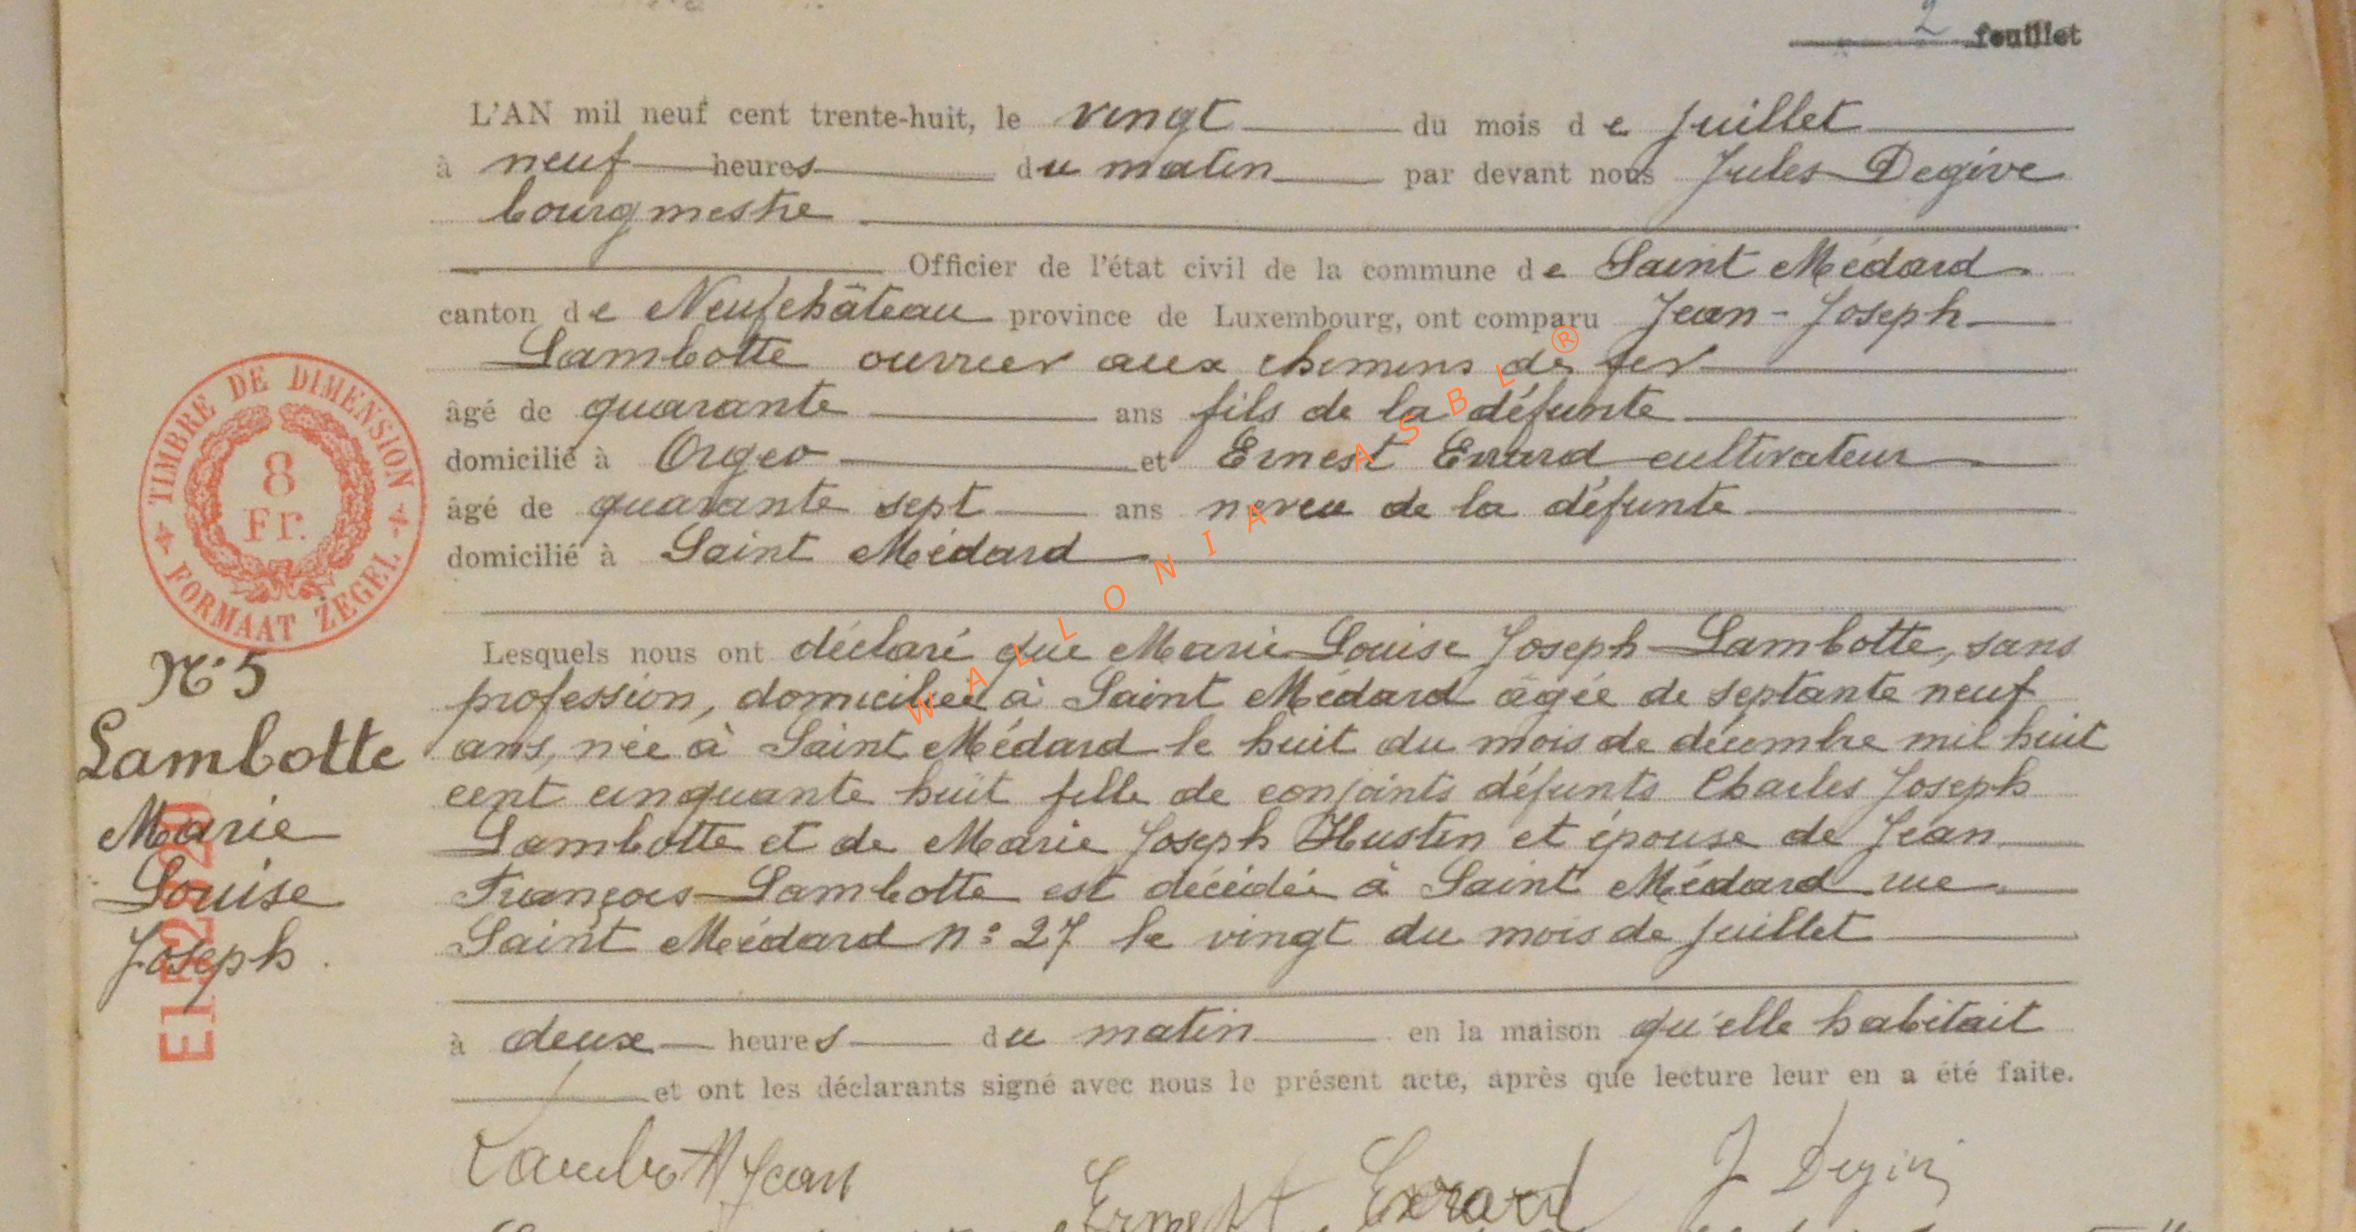 2 feuillet
L'AN mil neuf cent trente-huit, le vingt du mois de juillet
à neuf heures du matin par devant nous Jules Degive
bourgmestre
Officier de l'état civil de la commune de Saint Médard
canton de Neufchâteau province de Luxembourg, ont comparu Jean-Joseph
Lambotte ouvrier aux chemins de fer
âgé de quarante ans fils de la défunte
domicilié à Orgeo et Ernest Evrard cultivateur
âgé de quarante sept ans neveu de la défunte
domicilié à Saint Médard
TIMBRE DE DIMENSION
8
Fr.
FORMAAT ZEGEL
WALLONIA ASBL®
N° 5
Lambotte
Marie
Louise
Joseph
Lesquels nous ont déclaré que Marie Louise Joseph Lambotte, sans
profession, domiciliée à Saint Médard âgée de septante neuf
ans, née à Saint Médard le huit du mois de décembre mil huit
cent cinquante huit fille de conjoints défunts Charles Joseph
Lambotte et de Marie Joseph Hustin et épouse de Jean
François Lambotte est décédée à Saint Médard rue
Saint Médard n° 27 le vingt du mois de juillet
à deux heures du matin en la maison qu'elle habitait
et ont les déclarants signé avec nous le présent acte, après que lecture leur en a été faite.
Lambott Jean
Ernest Evrard
J Degive